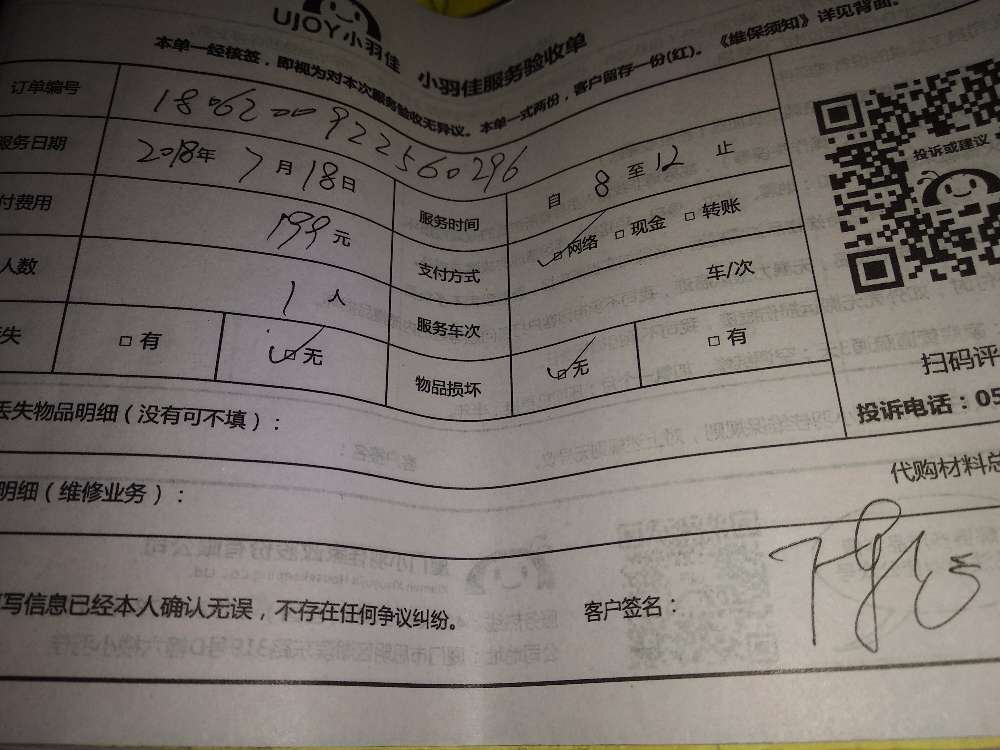 UJOY小羽佳 小羽佳服务验收单
本单一经核签，即视为对本次服务验收无异议。本单一式两份，客户留存一份(红)。《维保须知》详见背面。
订单编号 1806200922560296
服务日期 2018年7月18日 服务时间 自8至12止
付费用 199元 支付方式 ✓□网络 □现金 □转账
人数 1人 服务车次 车/次
失 □有 ✓□无 物品损坏 ✓□无 □有
投诉或建议
扫码评
投诉电话：05
丢失物品明细（没有可不填）：
代购材料总
明细（维修业务）：
写信息已经本人确认无误，不存在任何争议纠纷。 客户签名：